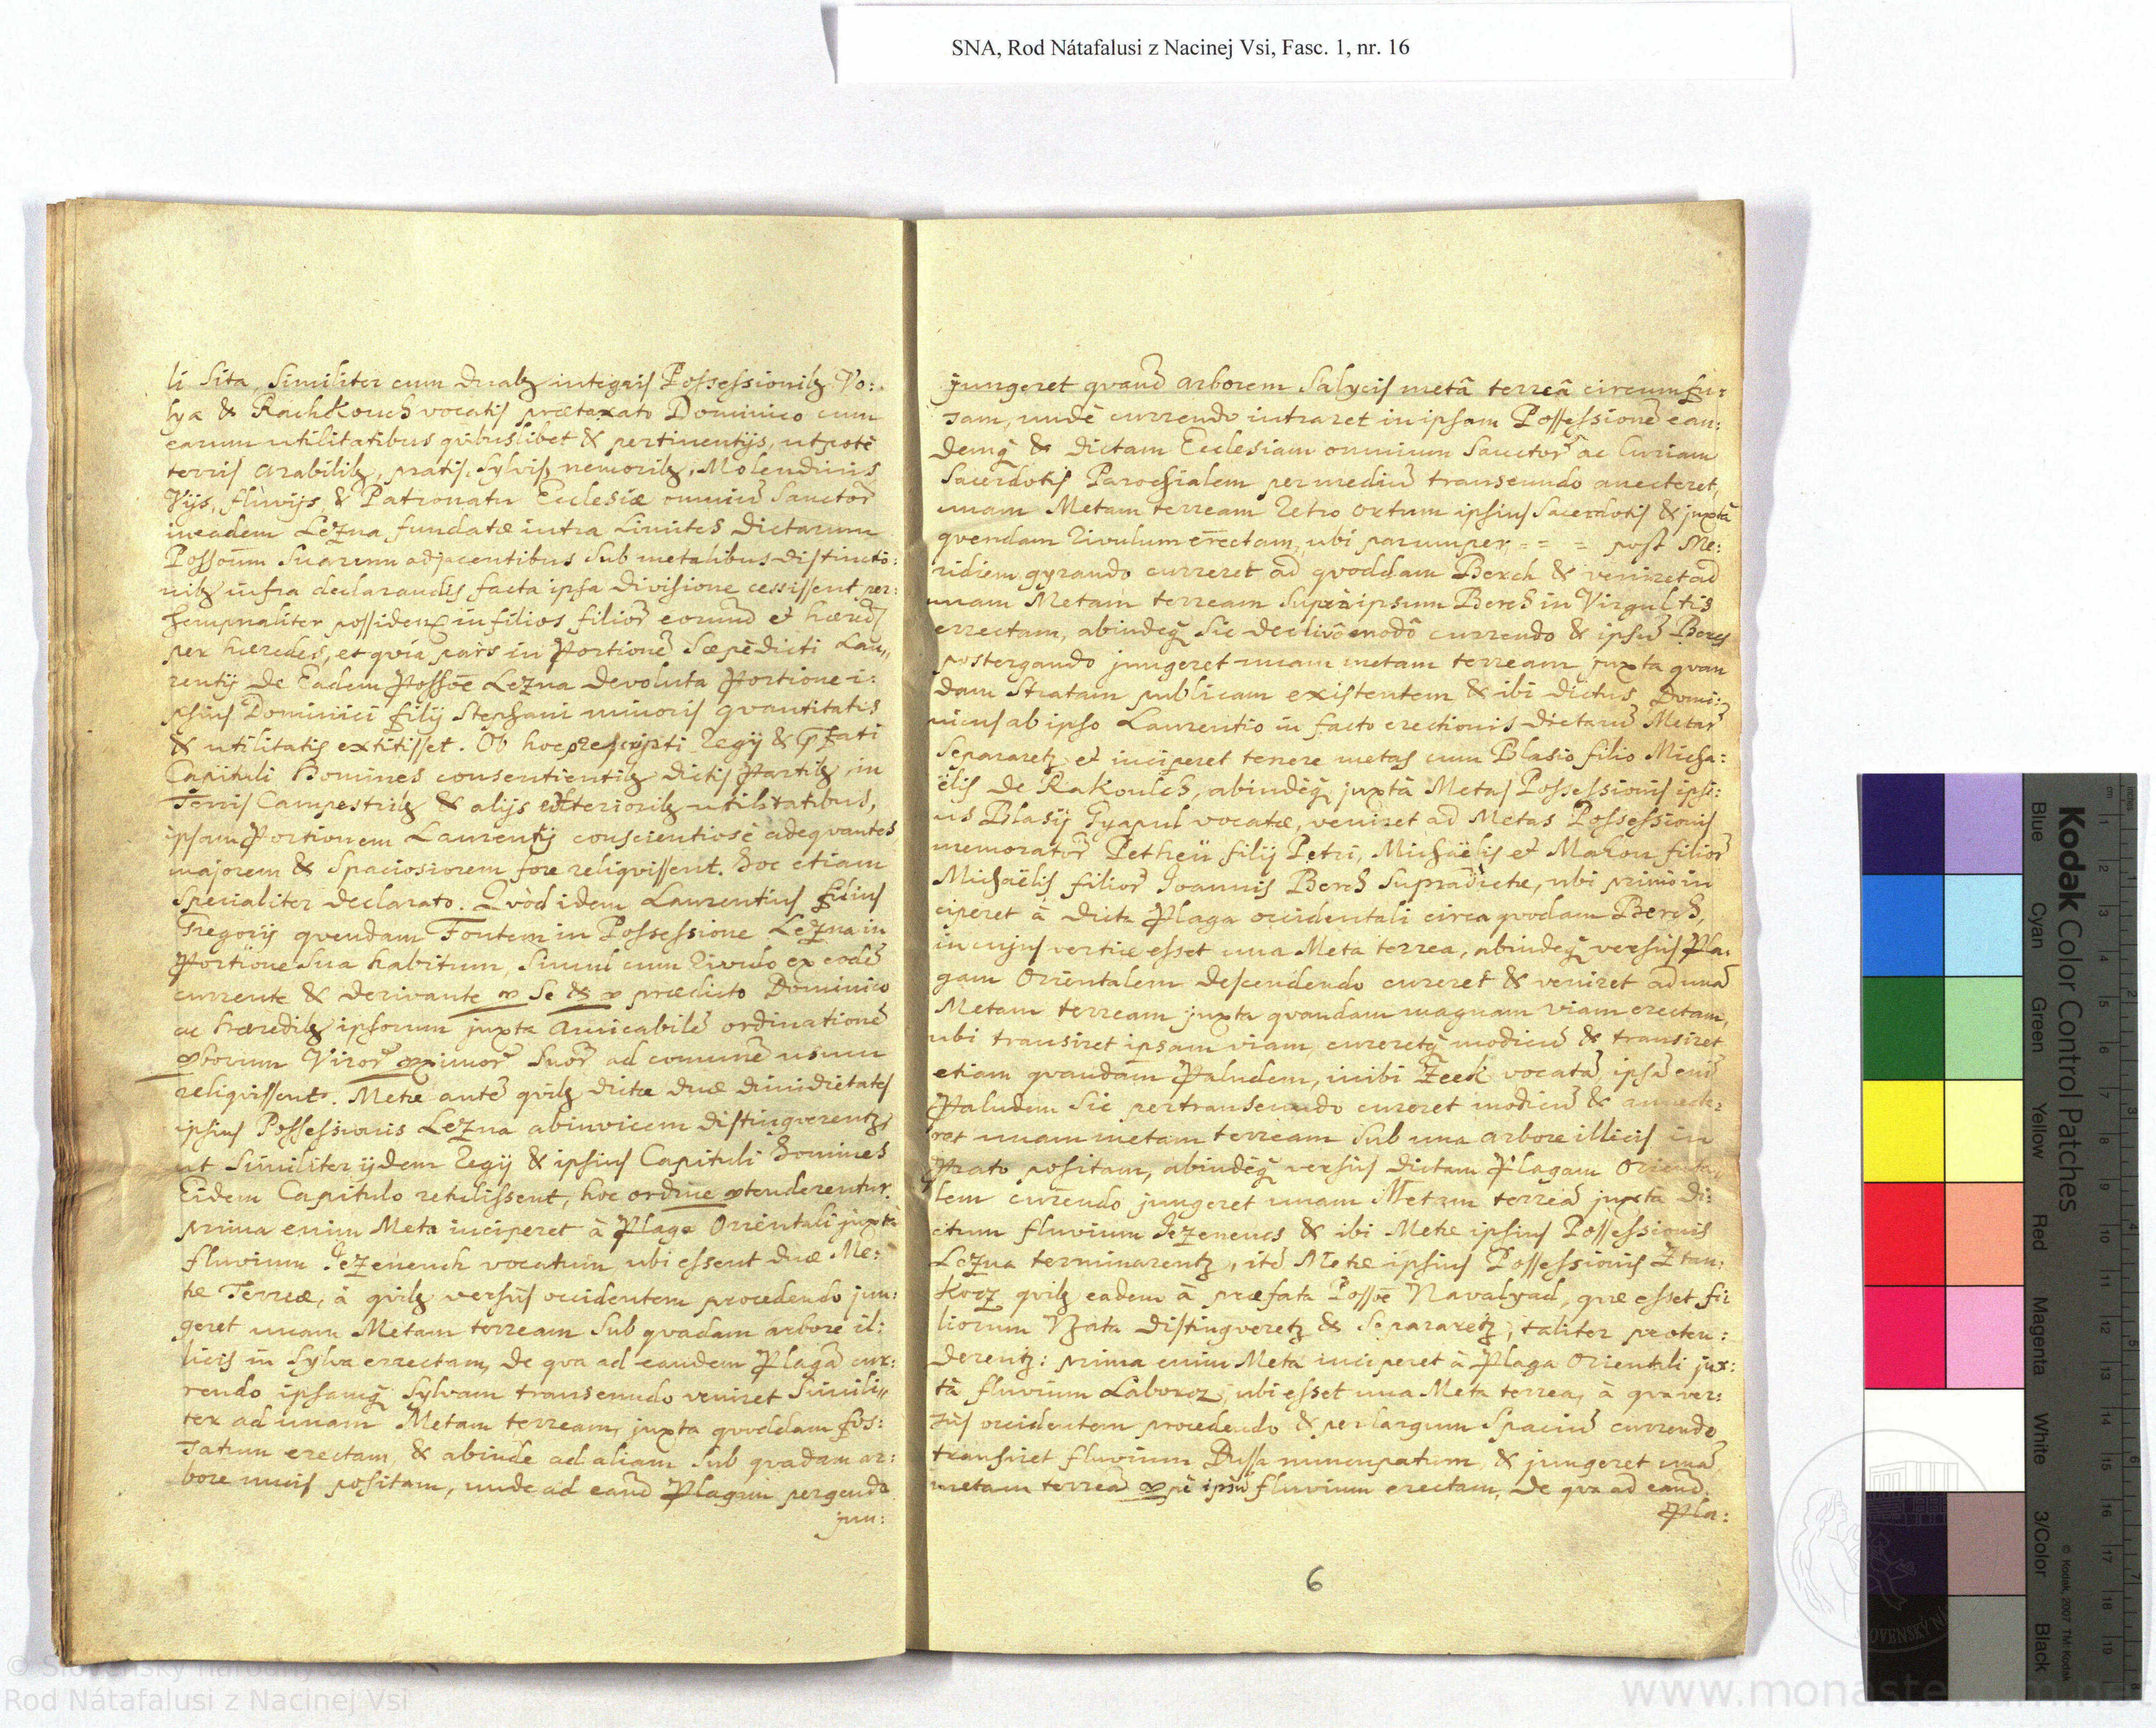 SNA, Rod Nátafalusi z Nacinej Vsi, Fasc. 1, nr. 16
li Sita, Similiter cum duabz integris Possessionibz Vo:
lya & Rachkouch vocatis prætaxato Dominico cum
earum utilitatibus qvibuslibet & pertinentijs, utpotè
terris arabilibz, pratis, Sylvis, nemoribz, Molendinis
Vijs, fluvijs, & Patronatu Ecclesiæ omniũ Sanctor̃
in eadem Lezna fundatæ intra Limites dictarum
Possoũm Suarum adjacentibus Sub metalibus distinctio:
nibz infra declarandis facta ipsa divisione cessissent per:
hempnaliter possidenꝫ in filios filior̃ eorund̃ et hæred̃
per hæredes, et qvia pars in Portionẽ Sæpè dicti Lau„
rentij de Eadem Possõe Lezna devoluta Portione i:
psius Dominici filij Stephani minoris qvantitatis
& utilitatis extitisset. Ob hoc præscripti Regij & p̃fati
Capituli Homines consentientibz dictis Partibz, in
Terris Campestribz & alijs exterioribz utilitatibus,
ipsam Portionem Laurentij conscientiosè adeqvantes
majorem & Spaciosiorem fore reliqvissent. hoc etiam
Specialiter declarato. Qvòd idem Laurentius filius
Gregorij qvendam Fontem in Possessione Lezna in
Portione Sua habitum, Simul cum Rivulo ex eodẽ
currente & derivante ꝓ Se & ꝓ prædicto Dominico
ac hæredibz ipsorum juxta amicabilẽ ordinationẽ
ꝓborum Viror̃ ꝓximor̃ Suor̃ ad comunẽ usum
reliqvissent. Metæ autẽ qvibz dictæ duæ dimidietates
ipsius Possessionis Lezna abinvicem distingverentꝫ,
ut Similiter ijdem Regij & ipsius Capituli Homines
Eidem Capitulo retulissent, hoc ordine ꝓtenderentur.
prima enim Meta inciperet à Plaga Orientali juxtà
fluvium Jezenench vocatum, ubi essent duæ Me:
tæ Terreæ, à qvibz versùs occidentem procedendo jun:
geret unam Metam terream Sub qvadam arbore il:
licis in Sylva errectam, de qva ad eandem Plagã cur:
rendo ipsamqꝫ Sylvam transeundo veniret Simili„
ter ad unam Metam terream, juxta qvoddam fos:
satum erectam, & abinde ad aliam Sub qvadam ar:
bore nucis positam, unde ad eand̃ Plagam pergendo
jun:
jungeret qvand̃ arborem Salycis metâ terreâ circumfu:
sam, undè currendo intraret in ipsam Possessionẽ ean:
demqꝫ & dictam Ecclesiam omnium Sanctor̃ ac Curiam
Sacerdotis Parochialem per mediũ transeundo anecteret,
unam Metam terream Retro ortum ipsius Sacerdotis & juxtà
qvendam Rivulum errectam, ubi parumper = = = post Me:
ridiem gyrando curreret ad qvoddam Berch & veniret ad
unam Metam terream Supra ipsum Berch in Virgultis
errectam, abindeqꝫ Sic declivo modô currendo & ipsũ Berch
postergando jungeret unam metam terream juxta qvan
dam Stratam publicam existentem & ibi dictus Domi:
nicus ab ipso Laurentio in facto erectionis dictarũ Metar̃
Separaretꝫ et inciperet tenere metas cum Blasio filio Micha:
ëlis de Rakoulch, abindèqꝫ juxtà Metas Possessionis ipsi:
us Blasij Gyapul vocatæ, veniret ad Metas Possessionis
memorator̃ Petheü filij Petri, Michaëlis et Makou filior̃
Michaëlis filior̃ Joannis Berch Supradictæ, ubi primò in
ciperet à dicta Plaga occidentali circa qvodam Berch,
in cujus vertice esset una Meta terrea, abindeqꝫ versùs Pla:
gam Orientalem descendendo cureret & veniret ad unã
Metam terream juxta qvandam magnam viam erectam,
ubi transiret ipsam viam, cureretqꝫ modicũ & transiret
etiam qvandam Paludem, inibi Zeek vocatã, ipsã enĩ
Paludem Sic pertranseundo cureret modicũ & annecte:
ret unam metam terream Sub una arbore illicis in
Prato positam, abindèqꝫ versùs dictam Plagam Orienta„
lem curendo jungeret unam Metam terreã juxta di:
ctum fluvium Jezenench & ibi Metæ ipsius Possessionis
Lezna terminarentꝫ, itẽ Metæ ipsius Possessionis Ztan:
korz qvibz eadem à præfata Possõe Navalyad, qvæ esset fi:
liorum Nata distingveretꝫ & Separaretꝫ, taliter proten:
derentꝫ: prima enim Meta inciperet à Plaga Orientali jux:
tà fluvium Laborcz, ubi esset una Meta terrea, à qva ver:
sùs occidentem procedendo & per largum Spaciũ currendo
transiret fluvium Dussa nuncupatum & jungeret unã
metam terreã ꝓpè ipsũ fluvium erectam, de qva ad eand̃
Pla:
6